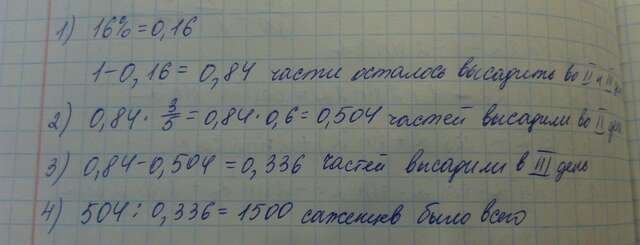 1) 16% = 0,16
1-0,16 = 0,84 части осталось высадить во II и III
2) 0,84 · 3/5 = 0,84 · 0,6 = 0,504 частей высадили во II день
3) 0,84-0,504 = 0,336 частей высадили в III день
4) 504 : 0,336 = 1500 саженцев было всего